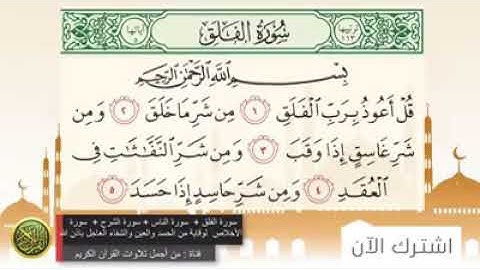 ترتيبها ١١٣ سُورَةُ الفَلَقِ آياتها ٥
بِسْمِ اللَّهِ الرَّحْمَٰنِ الرَّحِيمِ
قُلْ أَعُوذُ بِرَبِّ الْفَلَقِ ١ مِن شَرِّ مَا خَلَقَ ٢ وَمِن
شَرِّ غَاسِقٍ إِذَا وَقَبَ ٣ وَمِن شَرِّ النَّفَّاثَاتِ فِي
الْعُقَدِ ٤ وَمِن شَرِّ حَاسِدٍ إِذَا حَسَدَ ٥
سورة الفلق + سورة الناس + سورة الشرح + سورة
الأخلاص لوقاية من الحسد والعين والشفاء العاجل بأذن الله
قناة : من أجمل تلاوات القرآن الكريم
اشترك الآن